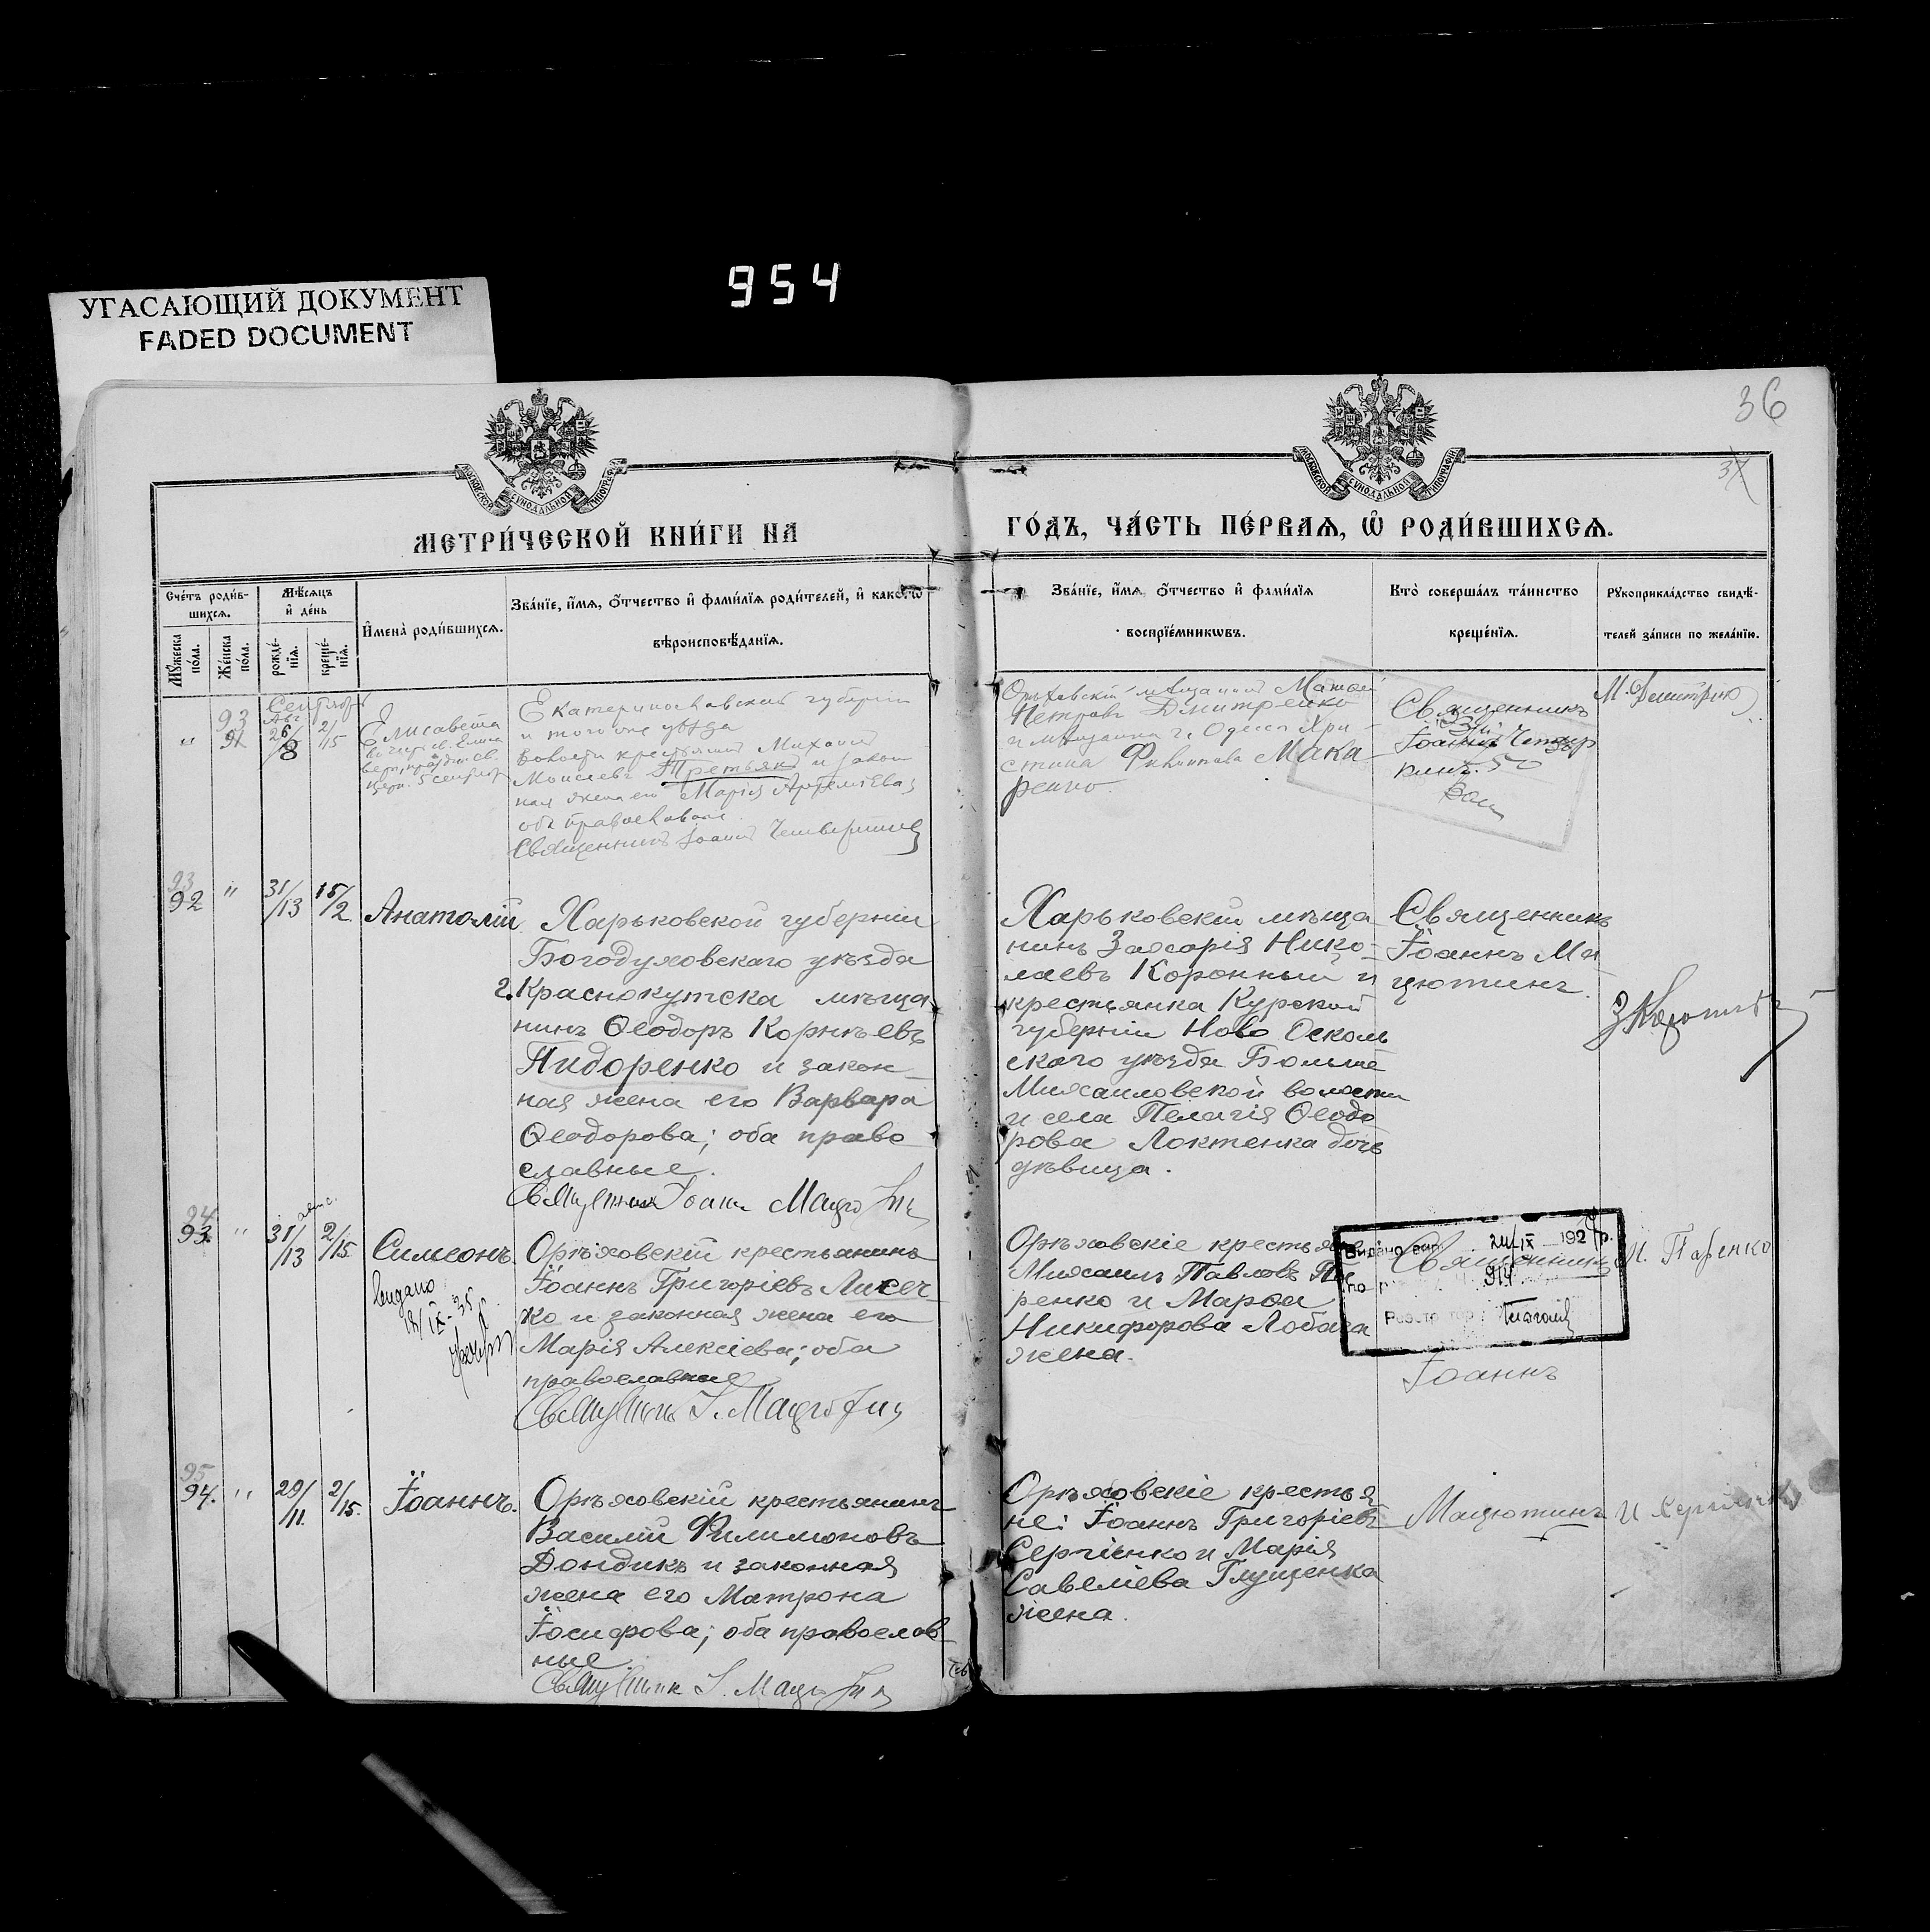 954
УГАСАЮЩИЙ ДОКУМЕНТ
FADED DOCUMENT
36
37
МОСКОВСКОЙ СѴНОДАЛЬНОЙ ТИПОГРАФІИ
МОСКОВСКОЙ СѴНОДАЛЬНОЙ ТИПОГРАФІИ
МЕТРИ́ЧЕСКОЙ КНИ́ГИ НА
ГО́ДЪ, ЧА́СТЬ ПЕ́РВАѦ, Ѡ҆ РОДИ́ВШИХСѦ.
Сче́тъ роди́в-
шихсѧ.
Мꙋ́жеска
по́ла.
Же́нска
по́ла.
Мѣ́сѧцъ
и҆ де́нь
рожде́-
нїѧ.
креще́-
нїѧ.
И҆мена̀ роди́вшихсѧ.
Зва́нїе, и҆́мѧ, ѻ҆́тчество и҆ фами́лїѧ роди́телей, и҆ како́гѡ
вѣроисповѣ́данїѧ.
Зва́нїе, и҆́мѧ, ѻ҆́тчество и҆ фами́лїѧ
воспрїе́мникѡвъ.
Кто̀ соверша́лъ та́инство
креще́нїѧ.
Рꙋкоприкла́дство свидѣ́-
телей за́писи по жела́нїю.
Сентябрь
93
Авг
26/8
2/15
Елисавета
5 сентяб
Екатеринославской губерніи
и того же уѣзда
волости крестьянинъ Михаилъ
Моисеевъ Третьякъ и закон
ная жена его Марія Артеміева;
оба православные.
Священникъ Іоаннъ
Орѣховскій мѣщанинъ
Петровъ Дмитренко
и мѣщанка г. Одессы Хри-
стина Мака-
ренко.
Священникъ
Іоаннъ
93
92
"
31/13
15/2
Анатолій
Харьковской губерніи
Богодуховскаго уѣзда
г. Краснокутска мѣща
нинъ Ѳеодоръ Корнѣевъ
Пидоренко и закон-
ная жена его Варвара
Ѳеодорова; оба право
славные.
Священникъ Іоаннъ
Харьковскій мѣща
нинъ Захарія Нико-
лаевъ Коронный и
крестьянка Курской
губерніи Ново Осколь
скаго уѣзда Больше
Михаиловской волости
и села Пелагія Ѳеодо
рова Локтенка дочь
дѣвица.
Священникъ
Іоаннъ Ма
цютинъ.
94
93.
"
31/13
2/15
Симеонъ.
Видано
18/IX-35
Орѣховскій крестьянинъ
Іоаннъ Григоріевъ Лисеч-
ко и законная жена его
Марія Алексіева; оба
православные
Священникъ І. Мацютинъ
Орѣховскіе крестьяне
Михаилъ Павловъ Па
ренко и Марѳа
Никифорова Лобача
жена.
Видано
24/IX 192 р.
914
Священникъ
Іоаннъ
М. Паренко
95
94.
"
29/11.
2/15.
Іоаннъ.
Орѣховскій крестьянинъ
Василій Филимоновъ
Дондикъ и законная
жена его Матрона
Іосифова; оба православ-
ные
Священникъ І. Мацютинъ
Орѣховскіе крестья
не: Іоаннъ Григоріевъ
Сергіенко и Марія
Савеліева Глущенка
жена.
Мацютинъ
И Сергіенко